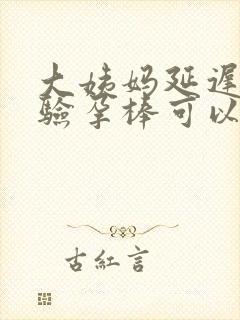 大姨妈延遲
驗孕棒可以
古紅言